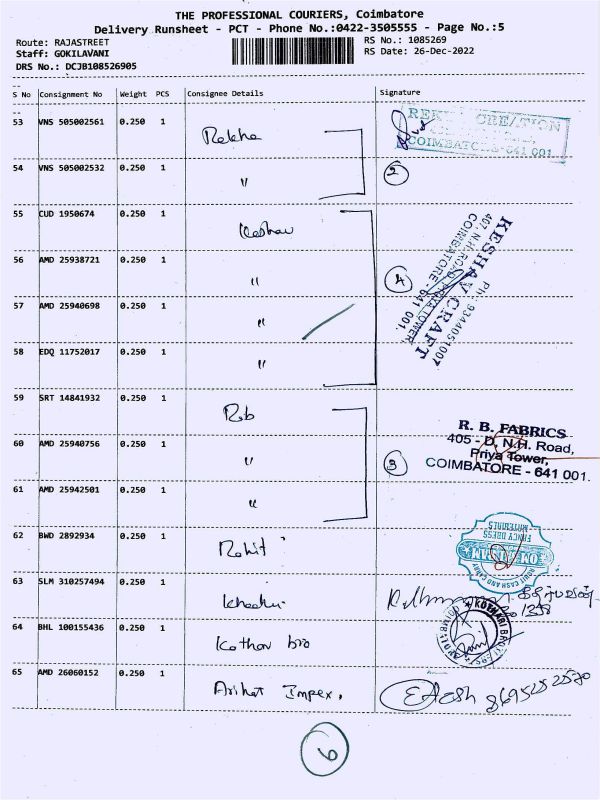 THE PROFESSIONAL COURIERS, Coimbatore
Delivery Runsheet - PCT - Phone No.:0422-3505555 - Page No.:5
Route: RAJASTREET
RS No.: 1085269
Staff: GOKILAVANI
RS Date: 26-Dec-2022
DRS No.: DCJB108526905
S No Consignment No Weight PCS Consignee Details Signature
53 VNS 505002561 0.250 1 Rekha
CREATION
COIMBATORE-641 001
54 VNS 505002532 0.250 1 " 2
55 CUD 1950674 0.250 1 Keshav
56 AMD 25938721 0.250 1 " 4
57 AMD 25940698 0.250 1 "
58 EDQ 11752017 0.250 1 "
KESHAV CRAFT
407, N.H.ROAD, PRIYA TOWER,
COIMBATORE - 641 001.
Ph: 9344051007
59 SRT 14841932 0.250 1 Rb
60 AMD 25940756 0.250 1 " 3
61 AMD 25942501 0.250 1 "
R. B. FABRICS
405 - D, N.H. Road,
Priya Tower,
COIMBATORE - 641 001.
62 BWD 2892934 0.250 1 Rohit
FANCY DRESS
MATERIALS
ROHIT CASH AND CARRY
63 SLM 310257494 0.250 1
64 BHL 100155436 0.250 1 Kothari bro
KOTHARI BROTHERS
65 AMD 26060152 0.250 1 Arihat Impex.
8695252570
6